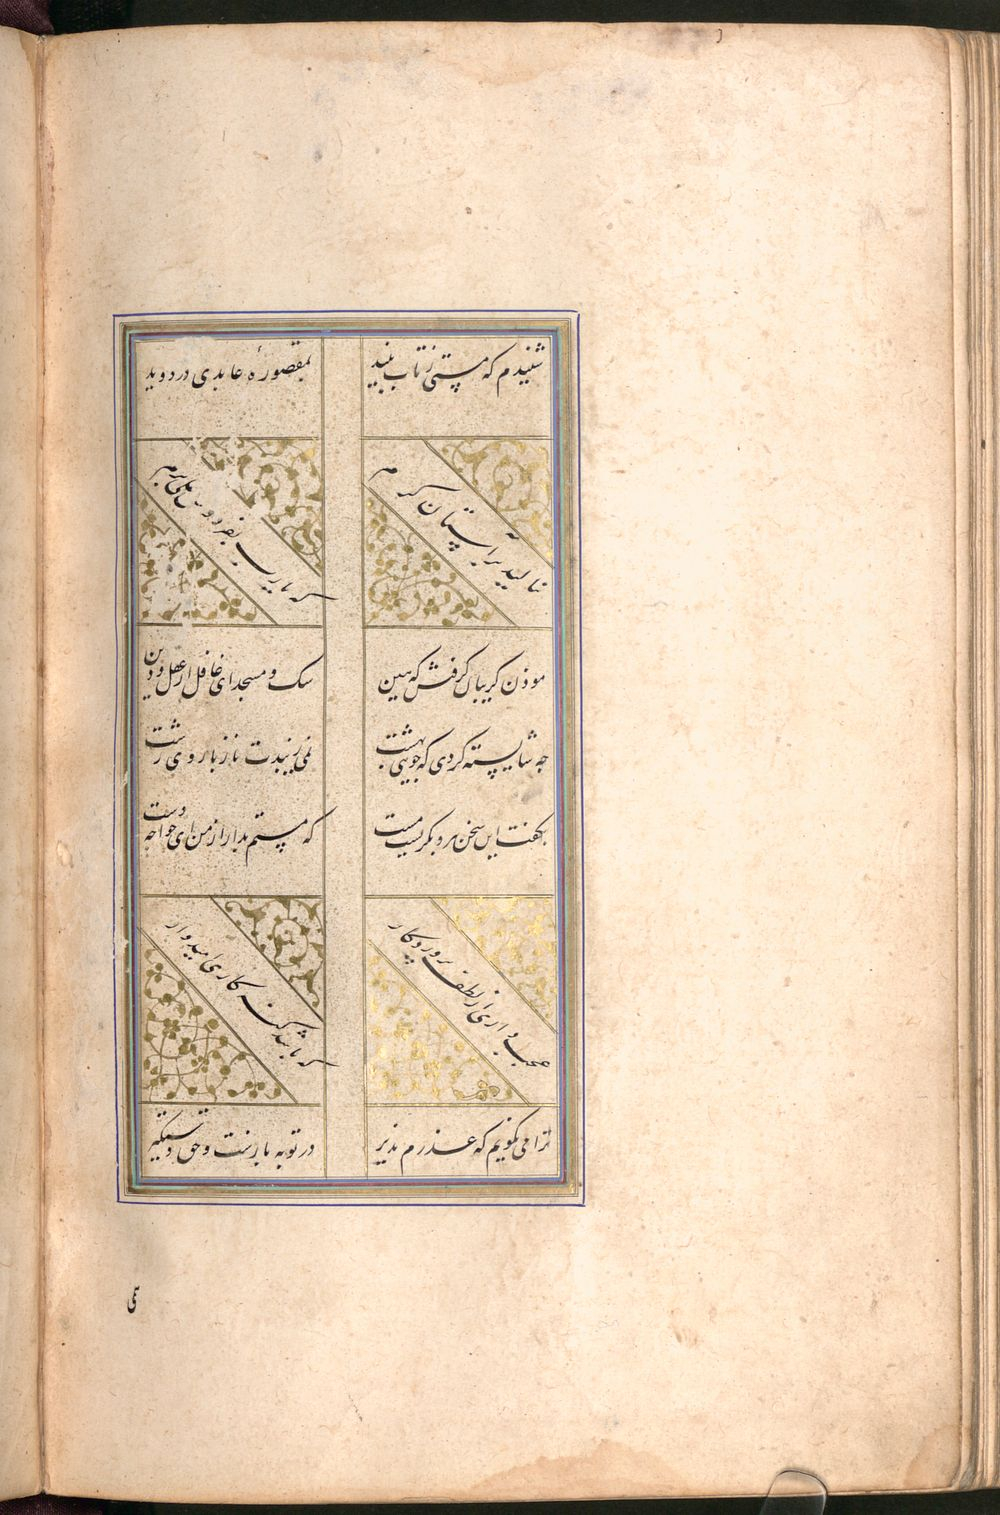 شنیدم که مستی ز تاب نبید
بمقصورهٔ عابدی در دوید
بنالید بر آستان کرم
که یارب بفردوس اعلی برم
موذن کریبان کرفتش که هین
سک و مسجد ای غافل از عقل و دین
چه شایسته کردی که جویی بهشت
نمی زیبدت ناز با روی زشت
بکفت این سخن مرد و بکریست مست
که مستم بدار از من ای خواجه دست
عجب داری از لطف پروردکار
که باشد کنه کاری امیدوار
ترا می نکویم که عذرم پذیر
در توبه بازست و حق دستکیر